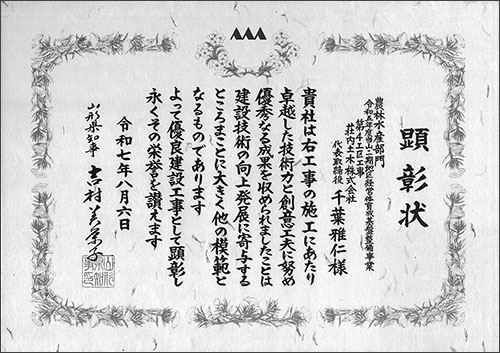 顕彰状
農林水産部門
令和五年度富山二期地区経営体育成基盤整備事業
第4工区工事
荘内土木株式会社
代表取締役 千葉雅仁様
貴社は右工事の施工にあたり
卓越した技術力と創意工夫に努め
優秀なる成果を収められましたことは
建設技術の向上発展に寄与する
ところまことに大きく他の模範と
なるものであります
よって優良建設工事として顕彰し
永くその栄誉を讃えます
令和七年八月六日
山形県知事 吉村美栄子